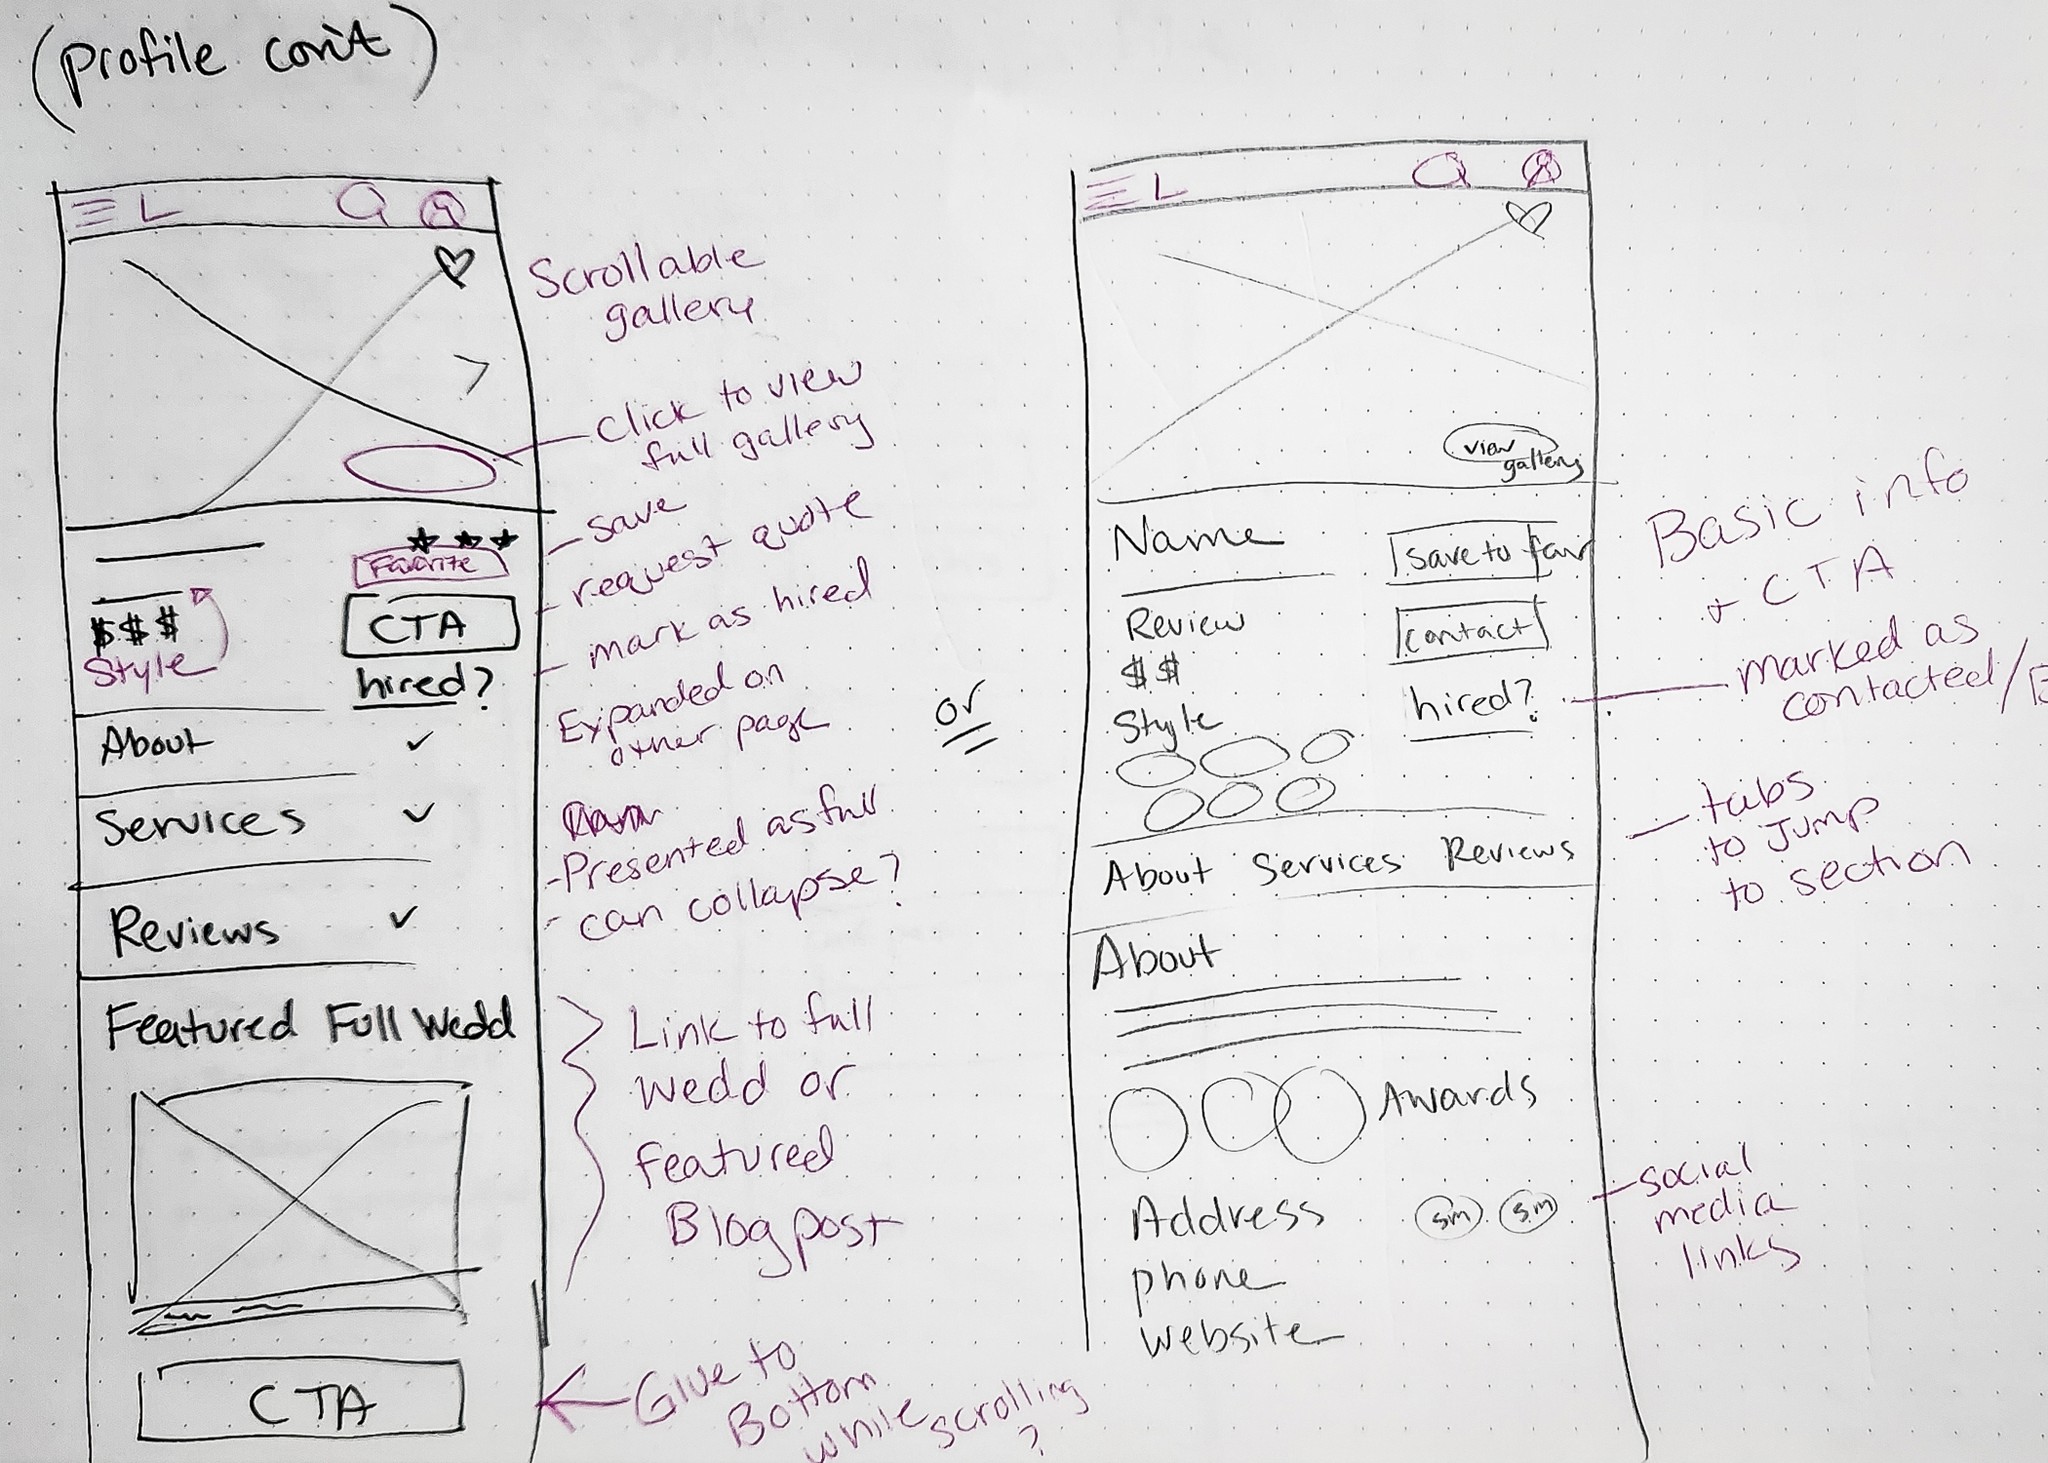 (profile con't)
L
Scrollable
gallery
click to view
full gallery
Favorite
save
request quote
CTA
$$$
Style
mark as hired
hired?
Expanded on
other page
About
Services
Presented as full
can collapse?
Reviews
Featured Full Wedd
Link to full
wedd or
featured
Blog post
CTA
Glue to
Bottom
while scrolling
?
or
L
view
gallery
Name
save to fav
Basic info
+ CTA
Review
contact
$$
Style
hired?
marked as
contacted/
About Services Reviews
tabs
to Jump
to section
About
Awards
Address
sm sm
social
media
links
phone
website